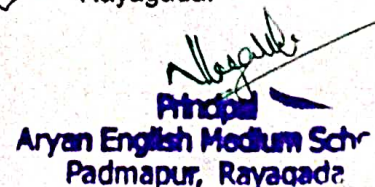 Rayagada.
Principal
Aryan English Medium Scho
Padmapur, Rayagada